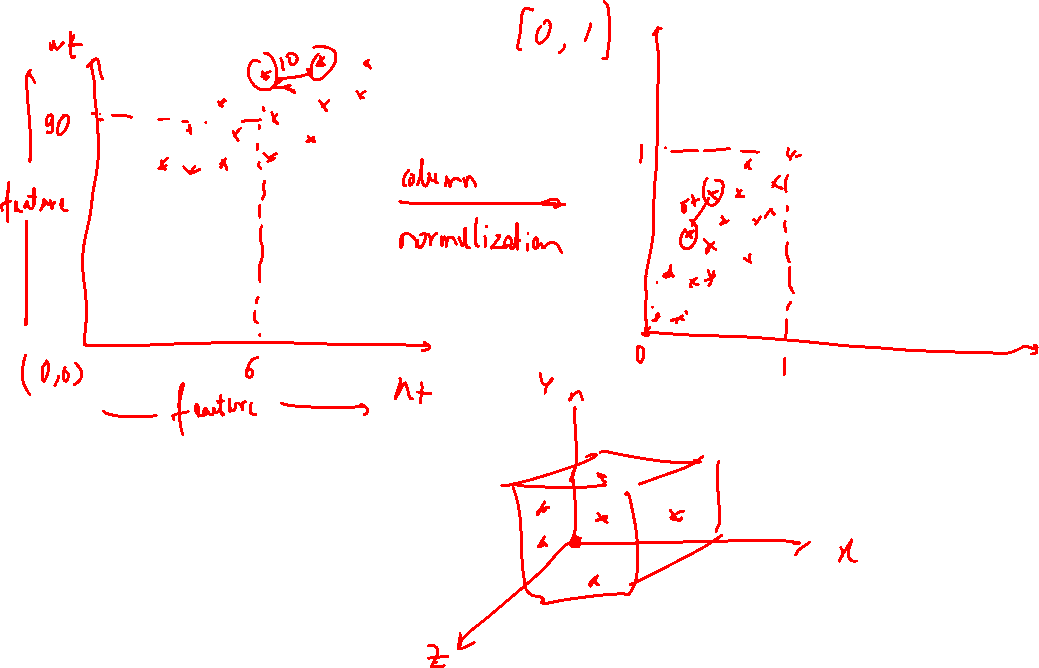 wt
10
90
feature
(0,0)
6
ht
feature
column
normalization
[0, 1]
1
0
1
Y
x
Z